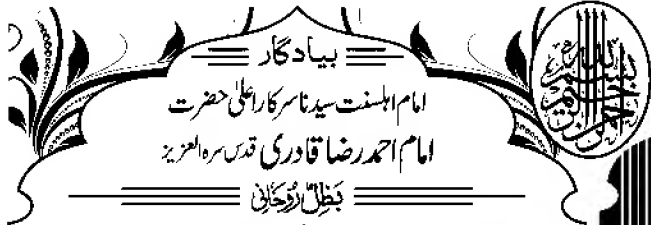 بسم الله الرحمن الرحيم
بیادگار
امام اہلسنت سیدنا سرکار اعلیٰ حضرت
امام احمد رضا قادری قدس سرہ العزیز
بظلِّ رُوحانی